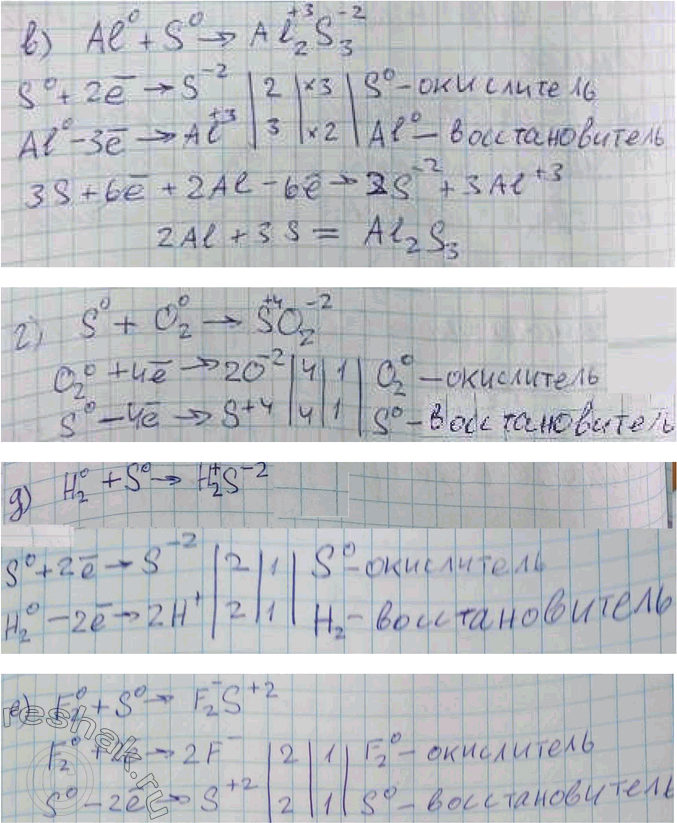 в) Al⁰ + S⁰ → Al₂⁺³S₃⁻²
S⁰ + 2ē → S⁻² | 2 | ×3 | S⁰ - окислитель
Al⁰ - 3ē → Al⁺³ | 3 | ×2 | Al⁰ - восстановитель
3S + 6ē + 2Al - 6ē → 3S⁻² + 3Al⁺³
2Al + 3S = Al₂S₃
г) S⁰ + O₂⁰ → S⁺⁴O₂⁻²
O₂⁰ + 4ē → 2O⁻² | 4 | 1 | O₂⁰ - окислитель
S⁰ - 4ē → S⁺⁴ | 4 | 1 | S⁰ - восстановитель
д) H₂⁰ + S⁰ → H₂⁺S⁻²
S⁰ + 2ē → S⁻² | 2 | 1 | S⁰ - окислитель
H₂⁰ - 2ē → 2H⁺ | 2 | 1 | H₂ - восстановитель
е) F₂⁰ + S⁰ → F₂⁻S⁺²
F₂⁰ + ē → 2F⁻ | 2 | 1 | F₂⁰ - окислитель
S⁰ - 2ē → S⁺² | 2 | 1 | S⁰ - восстановитель
reshak.ru